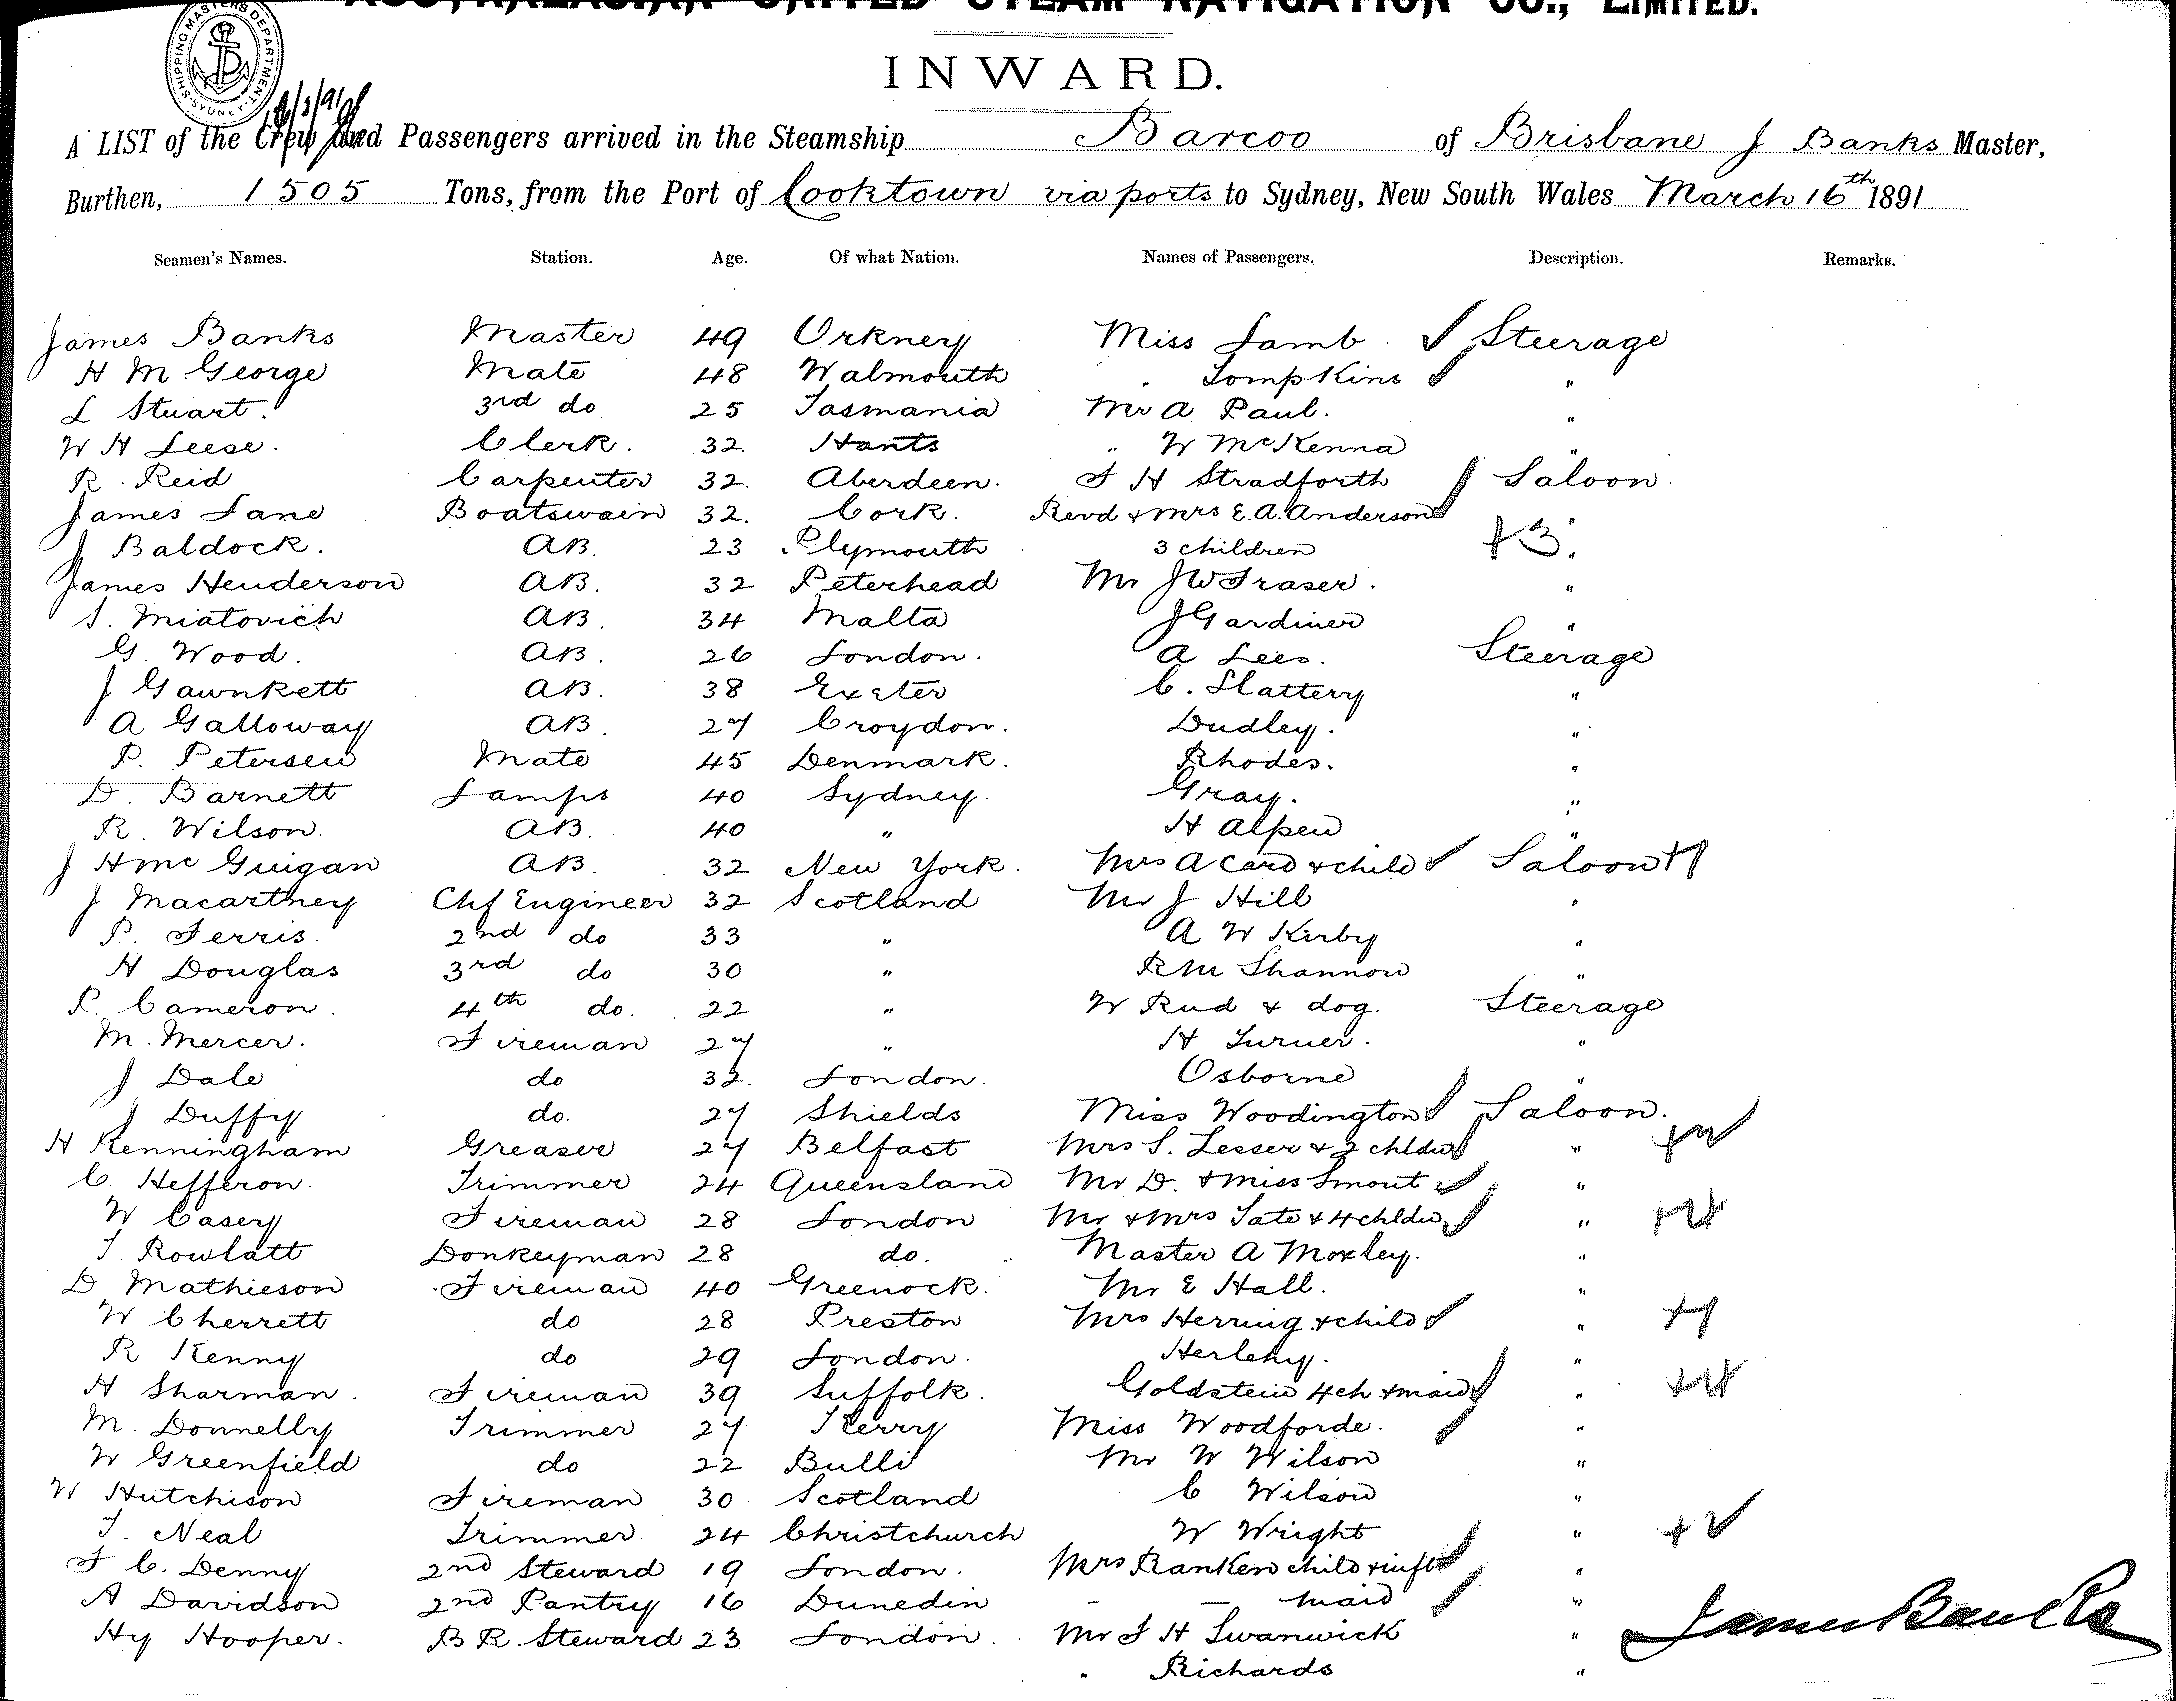 AUSTRALASIAN UNITED STEAM NAVIGATION CO., LIMITED.
SHIPPING MASTERS DEPARTMENT SYDNEY
INWARD.
A LIST of the Crew and Passengers arrived in the Steamship Barcoo of Brisbane J Banks Master,
Burthen, 1505 Tons, from the Port of Cooktown via ports to Sydney, New South Wales March 16th 1891
Seamen's Names. Station. Age. Of what Nation. Names of Passengers. Description. Remarks.
James Banks Master 49 Orkney Miss Lamb Steerage
H M George Mate 48 Walmouth " Tompkins "
L Stuart. 3rd do 25 Tasmania Mr A Paul. "
W H Leese. Clerk. 32 Hants " W McKenna "
R. Reid Carpenter 32 Aberdeen. J H Stradforth Saloon.
James Lane Boatswain 32. Cork. Revd & Mrs E. A. Anderson
J Baldock. AB. 23 Plymouth 3 children +3.
James Henderson AB. 32 Peterhead Mr J W Fraser. "
S. Miatovich AB. 34 Malta J Gardiner "
G. Wood. AB. 26 London. A Lees. Steerage
J Gawnkett AB. 38 Exeter C. Slattery "
A Galloway AB. 27 Croydon. Dudley. "
P. Petersen Mate 45 Denmark. Rhodes. "
D. Barnett Lamps 40 Sydney. Gray. "
R. Wilson. AB. 40 " H Alpen "
J H McGuigan AB. 32 New York. Mrs A Card & child Saloon +1
J Macartney Chf Engineer 32 Scotland Mr J Hill "
P. Ferris. 2nd do 33 " A W Kirby "
H Douglas 3rd do 30 " R M Shannon "
P. Cameron. 4th do. 22 " W Rud & dog. Steerage
M. Mercer. Fireman 27 " H Turner. "
J Dale do 32. London. Osborne "
J Duffy do. 27 Shields Miss Woodington Saloon.
H Kenningham Greaser 27 Belfast Mrs S. Lesser & 2 chldn " +2
C. Hefferon. Trimmer 24 Queensland Mr D. & Miss Smout "
W Casey Fireman 28 London Mr & Mrs Tate & 4 chldn " +4
T. Rowlatt Donkeyman 28 do. Master A Moxley. "
D. Mathieson Fireman 40 Greenock. Mr E Hall. "
W Cherrett do 28 Preston Mrs Herring & child " +1
R Kenny do 29 London. Herlehy. "
H Sharman. Fireman 39 Suffolk. Goldstein 4 ch & maid " +4
M. Donnelly Trimmer 27 Kerry Miss Woodforde. "
W Greenfield do 22 Bulli Mr W Wilson "
W Hutchison Fireman 30 Scotland C Wilson "
T. Neal Trimmer 24 Christchurch W Wright " +2
F C. Denny 2nd Steward 19 London. Mrs Ranken child & inft "
A Davidson 2nd Pantry 16 Dunedin maid "
Hy Hooper. B R. Steward 23 London. Mr J H Swanwick "
" Richards "
James Banks